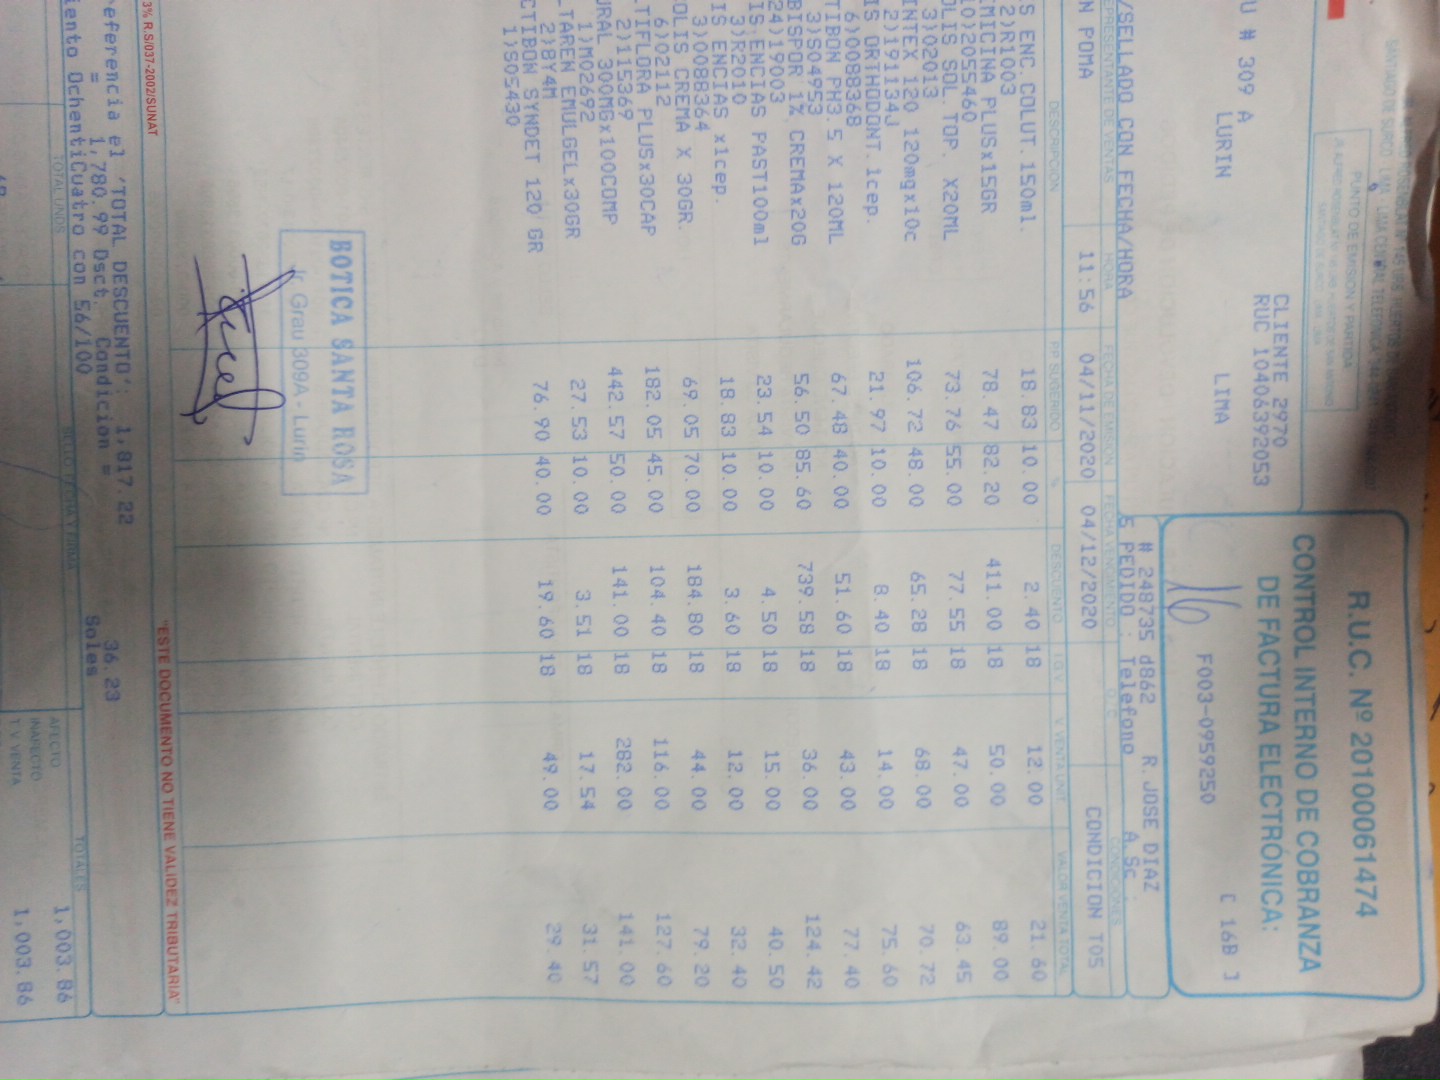 R.U.C. Nº 20100061474
CONTROL INTERNO DE COBRANZA
DE FACTURA ELECTRÓNICA:
[ 16B ]
F003-0959250
PUNTO DE EMISION Y PARTIDA
CLIENTE 2970
RUC 10406392053
U # 309 A
LURIN LIMA
# 248735 d862 R. JOSE DIAZ
S PEDIDO : Telefono A.Sc.
/SELLADO CON FECHA/HORA
EPRESENTANTE DE VENTAS HORA FECHA DE EMISION FECHA VENCIMIENTO O/C CONDICIONES
N POMA 11:56 04/11/2020 04/12/2020 CONDICION T05
DESCRIPCION P.P. SUGERIDO % DESCUENTO I.G.V. V. VENTA UNIT. VALOR VENTA TOTAL
S ENC.COLUT.150ml. 18.83 10.00 2.40 18 12.00 21.60
2)R1003
MICINA PLUSx15GR 78.47 82.20 411.00 18 50.00 89.00
10)2055460
OLIS SOL. TOP. X20ML 73.76 55.00 77.55 18 47.00 63.45
3)02013
INTEX 120 120mgx10c 106.72 48.00 65.28 18 68.00 70.72
2)191134J
IS ORTHODONT.1cep. 21.97 10.00 8.40 18 14.00 75.60
6)088368
TIBON PH3.5 X 120ML 67.48 40.00 51.60 18 43.00 77.40
3)S04953
BISPOR 1% CREMAx20G 56.50 85.60 739.58 18 36.00 124.42
24)19003
IS.ENCIAS PAST100ml 23.54 10.00 4.50 18 15.00 40.50
3)R2010
IS ENCIAS x1cep. 18.83 10.00 3.60 18 12.00 32.40
3)088364
OLIS CREMA X 30GR. 69.05 70.00 184.80 18 44.00 79.20
6)02112
TIFLORA PLUSx30CAP 182.05 45.00 104.40 18 116.00 127.60
2)115369
URAL 300MGx100COMP 442.57 50.00 141.00 18 282.00 141.00
1)M02692
TAREN EMULGELx30GR 27.53 10.00 3.51 18 17.54 31.57
2)BY4M
CTIBON SYNDET 120 GR 76.90 40.00 19.60 18 49.00 29.40
1)S05430
BOTICA SANTA ROSA
Jr. Grau 309A - Lurin
3% R.S/037-2002/SUNAT
"ESTE DOCUMENTO NO TIENE VALIDEZ TRIBUTARIA"
eferencia el 'TOTAL DESCUENTO': 1,817.22
= 1,780.99 Dsct. Condicion = 36.23
iento OchentiCuatro con 56/100 Soles
TOTAL UNIDS SELLO Y FIRMA TOTALES
AFECTO 1,003.86
INAFECTO
T.V. VENTA 1,003.86